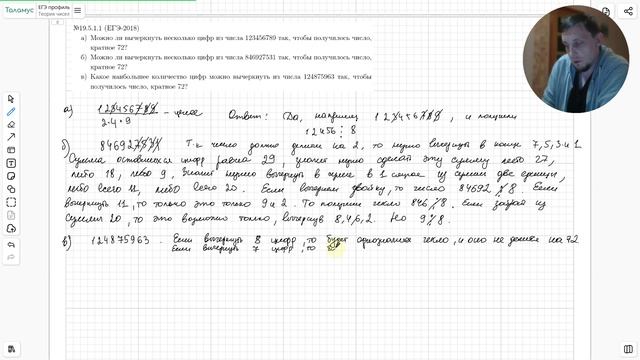 Таламус
ЕГЭ профиль
Теория чисел
№19.5.1.1 (ЕГЭ-2018)
а) Можно ли вычеркнуть несколько цифр из числа 123456789 так, чтобы получилось число,
кратное 72?
б) Можно ли вычеркнуть несколько цифр из числа 846927531 так, чтобы получилось число,
кратное 72?
в) Какое наибольшее количество цифр можно вычеркнуть из числа 124875963 так, чтобы
получилось число, кратное 72?
а) 123456789 / 2·4·9 – целое Ответ: Да, например 123456789, и получим
12456 ⋮ 8
б) 846927531 Т.к число должно делиться на 2, то нужно в конце 7,5,3 и 1
Сумма оставшихся цифр равна 29, значит нужно сделать эту сумму либо 27,
либо 18, либо 9. Значит нужно вычеркнуть в 1 случае из суммы две единицы,
либо всего 11, либо всего 20. Если вычеркнем двойку, то число 84692 ⋮ 8. Если
вычеркнуть 11, то только это только 9 и 2. То получим число 846 ⋮ 8. Если убрать из
суммы 20, то это возможно только, вычеркнув 8,4,6,2. Но 9 ⋮ 8.
в) 124875963. Если вычеркнуть 8 цифр, то будет однозначное число, и оно не делится на 72
Если вычеркнуть 7 цифр, то